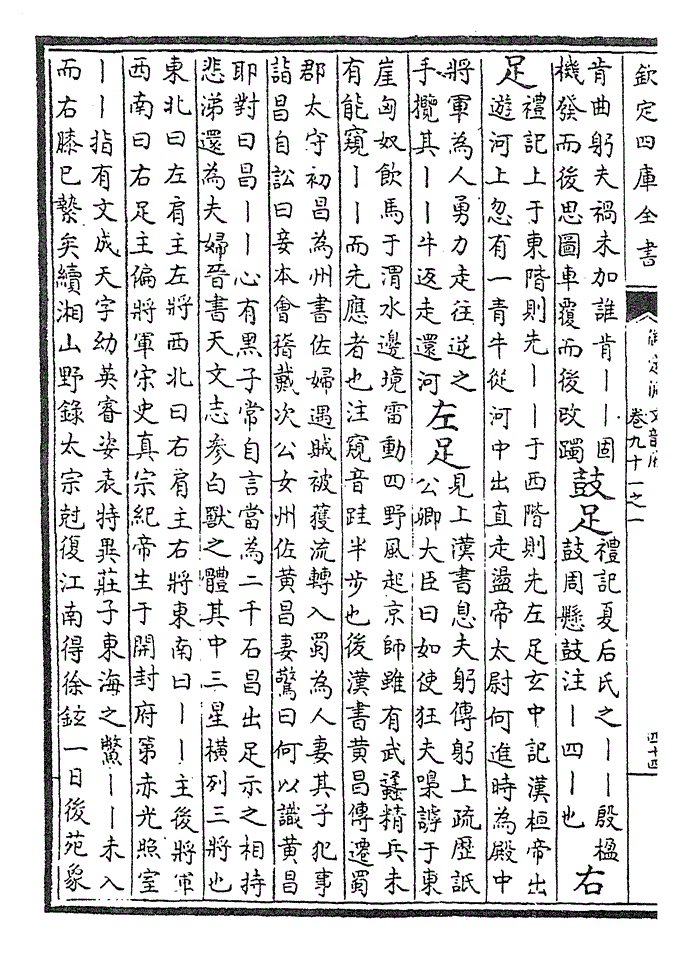 欽定四庫全書
御定佩文韻府
卷九十一之一
四十四
肯曲躬夫禍未加誰肯丨丨固
機發而後思圖車覆而後改躅
鼓足
禮記夏后氏之丨丨殷楹
鼓周懸鼓注丨四丨也
右
足
禮記上于東階則先丨丨于西階則先左足玄中記漢桓帝出
遊河上忽有一青牛從河中出直走盪帝太尉何進時為殿中
將軍為人勇力走往逆之
手攬其丨丨牛返走還河
左足
見上漢書息夫躬傳躬上疏歷詆
公卿大臣曰如使狂夫嘄謼于東
崖匈奴飲馬于渭水邊境雷動四野風起京師雖有武蠭精兵未
有能窺丨丨而先應者也注窺音跬半步也後漢書黄昌傳遷蜀
郡太守初昌為州書佐婦遇賊被獲流轉入蜀為人妻其子犯事
詣昌自訟曰妾本會稽戴次公女州佐黄昌妻驚曰何以識黄昌
耶對曰昌丨丨心有黑子常自言當為二千石昌出足示之相持
悲涕還為夫婦晉書天文志参白獸之體其中三星横列三將也
東北曰左肩主左將西北曰右肩主右將東南曰丨丨主後將軍
西南曰右足主偏將軍宋史真宗紀帝生于開封府第赤光照室
丨丨指有文成天字幼英睿姿表特異莊子東海之鱉丨丨未入
而右膝已縶矣續湘山野錄太宗尅復江南得徐鉉一日後苑象